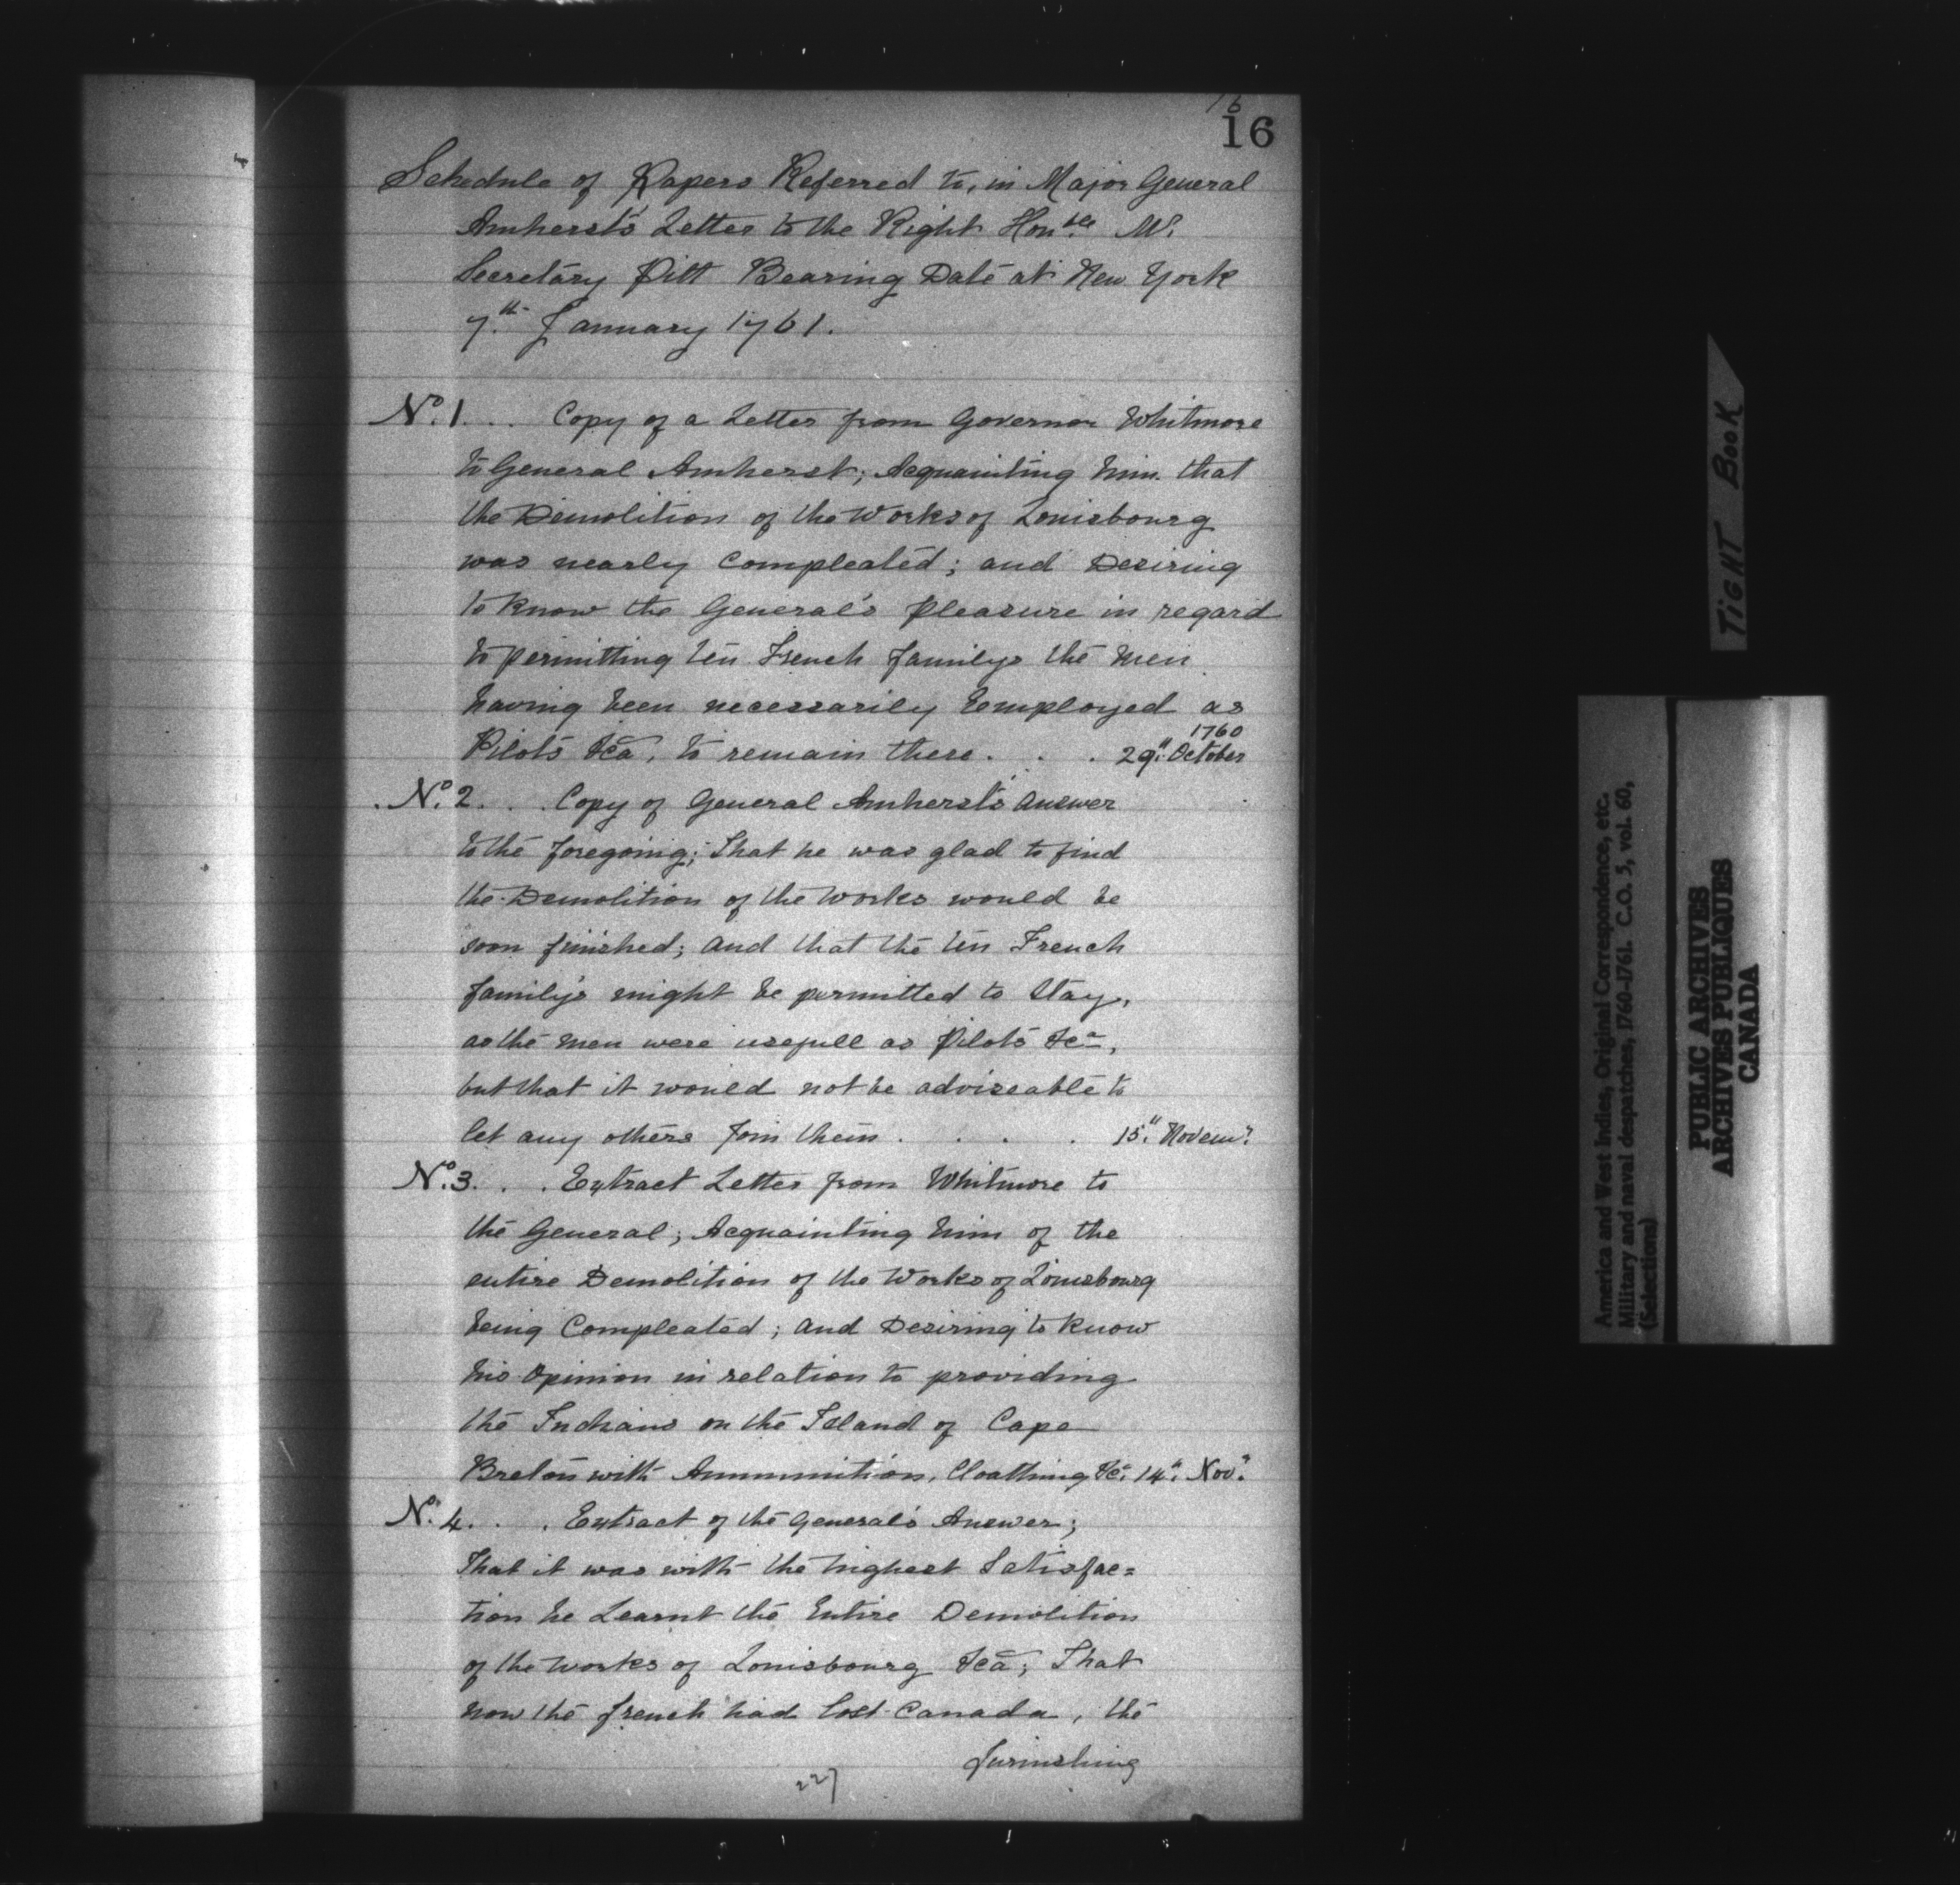 16
16
Schedule of Papers Referred to, in Major General
Amherst's Letter to the Right Hon.ble Mr.
Secretary Pitt Bearing Date at New York
7.th January 1761.
No. 1. . . Copy of a Letter from Governor Whitmore
to General Amherst; Acquainting him that
the Demolition of the Works of Louisbourg
was nearly Compleated; and Desiring
to know the General's Pleasure in regard
to permitting ten French familys the men
having been necessarily Employed as
1760
Pilots &ca, to remain there. . . . 29": October
No. 2. . . Copy of General Amherst's Answer
to the foregoing; That he was glad to find
the Demolition of the Works would be
soon finished; and that the ten French
family's might be permitted to Stay,
as the men were usefull as Pilots &ca,
but that it would not be adviseable to
let any others Join them . . . . 15": Novemr.
No. 3. . . Extract Letter from Whitmore to
the General; Acquainting him of the
entire Demolition of the Works of Louisbourg
being Compleated; and Desiring to know
his Opinion in relation to providing
the Indians on the Island of Cape
Breton with Ammunition, Cloathing &c. 14": Novr.
No. 4. . . Extract of the General's Answer;
That it was with the highest Satisfac=
tion he Learnt the Entire Demolition
of the Works of Louisbourg &ca; That
now the french had lost Canada, the
furnishing
227
TIGHT BOOK
America and West Indies, Original Correspondence, etc.
Military and naval despatches, 1760-1761. C.O. 5, vol. 60,
(Selections)
PUBLIC ARCHIVES
ARCHIVES PUBLIQUES
CANADA